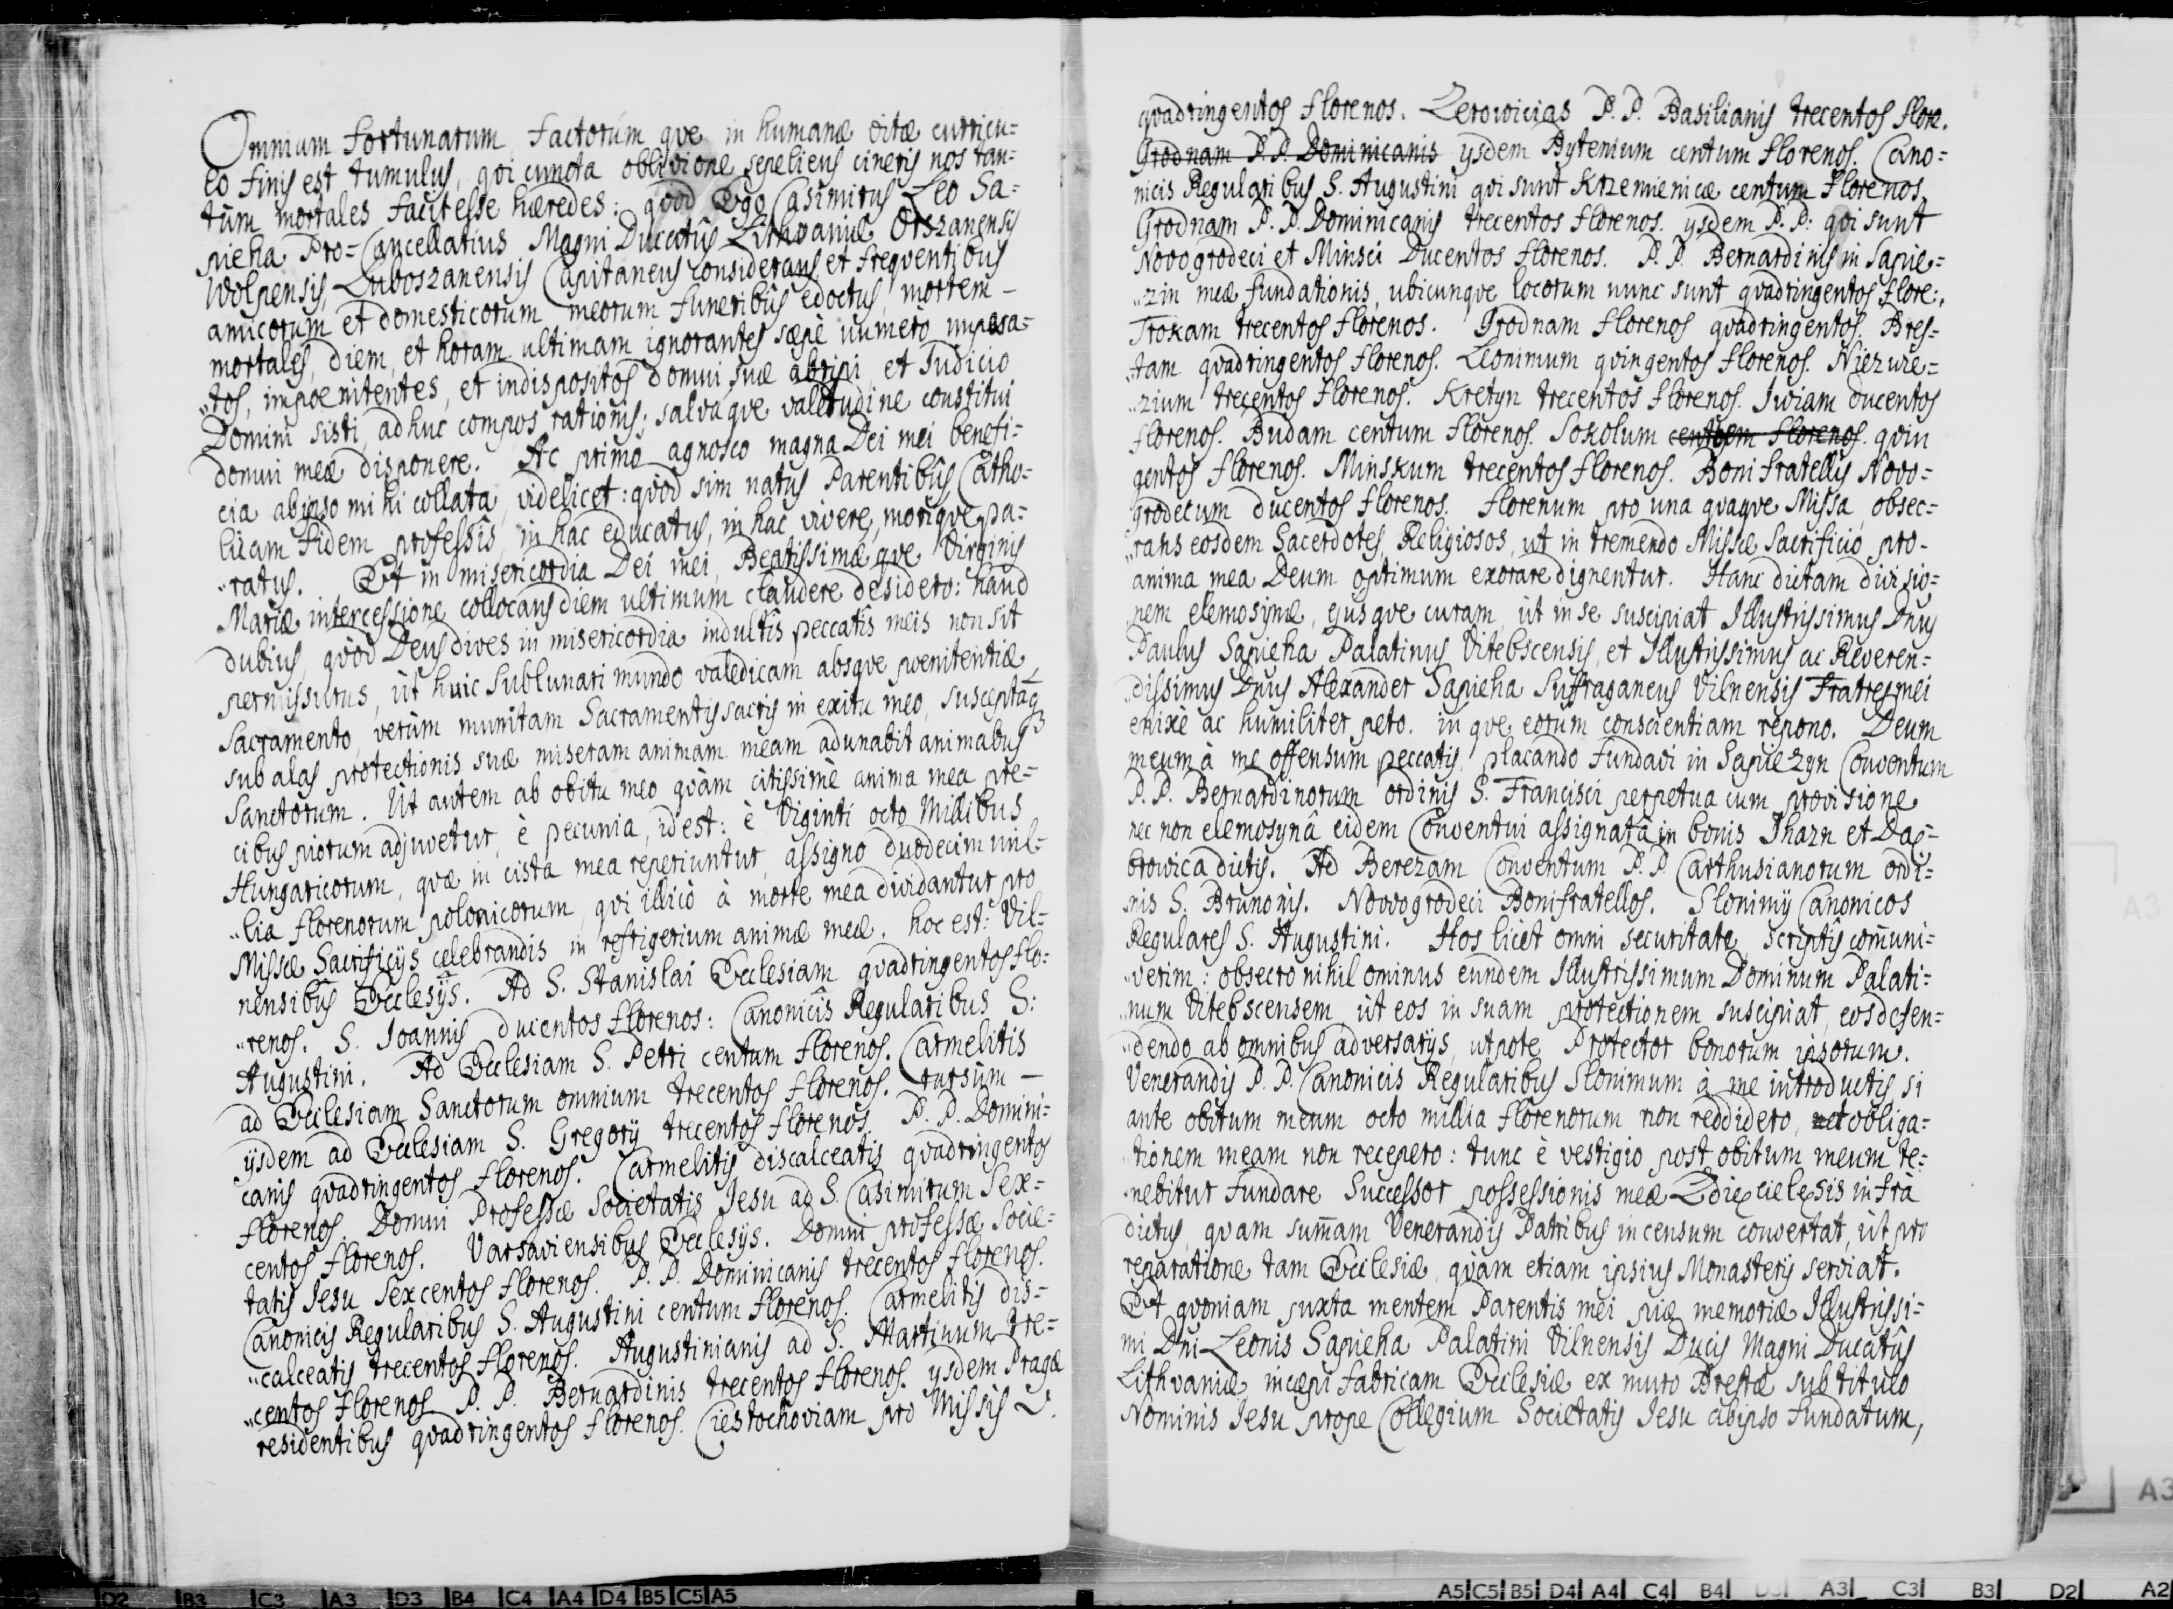 Omnium fortunarum factorum qve in humanæ vitæ curricu=
lo finis est tumulus, qvi cuncta oblivione sepeliens cineris nos tan=
tum mortales facit esse hæredes: qvod Ego Casimirus Leo Sa=
pieha Pro=Cancellarius Magni Ducatûs Lithvaniæ Orszanensis
Wolpensis, Luboszanensis Capitaneus considerans et freqventibus
amicorum et domesticorum meorum funeribus edoctus, mortem
mortales, diem, et horam ultimam ignorantes sæpè numero impara=
tos, impoenitentes, et indispositos domui suæ abripi et Judicio
Domini sisti, adhuc compos rationis, salvaqve valetudine constitui
domui meæ disponere. Ac primo agnosco magna Dei mei benefi=
cia ab ipso mihi collata, videlicet: qvod sim natus Parentibus Catho=
licam Fidem professis, in hac educatus, in hac vivere, moriqve pa=
ratus. Et in misericordia Dei mei, Beatissimæqve Virginis
Mariæ intercessione collocans diem ultimum claudere desidero: haud
dubius, qvod Deus dives in misericordia indultis peccatis meis non sit
permissurus, ut huic sublunari mundo valedicam absqve pœnitentiæ
Sacramento, verum munitam Sacramentis sacris in exitu meo, susceptaq
sub alas protectionis suæ miseram animam meam adunabit animabus
Sanctorum. Ut autem ab obitu meo qvàm citissimè anima mea pre=
cibus piorum adjuvetur, è pecunia, id est: è Viginti octo Millibus
Hungaricorum, qvæ in cista mea reperiuntur, assigno duodecim mil=
lia florenorum polonicorum, qvi illicò à morte mea dividantur pro
Missæ Sacrificijs celebrandis in refrigerium animæ meæ, hoc est: Vil=
nensibus Ecclesijs. Ad S. Stanislai Ecclesiam qvadringentos flo=
renos. S. Joannis ducentos florenos: Canonicis Regularibus S:
Augustini. Ad Ecclesiam S. Petri centum florenos. Carmelitis
ad Ecclesiam Sanctorum omnium trecentos florenos. rursùm
ijsdem ad Ecclesiam S. Gregorij trecentos florenos. P. P. Domini=
canis qvadringentos florenos. Carmelitis discalceatis qvadringentos
florenos. Domui Professæ Societatis Jesu ad S. Casimirum Sex=
centos florenos. Varsaviensibus Ecclesijs. Domui professæ Socie=
tatis Jesu Sexcentos florenos. P. P. Dominicanis trecentos florenos.
Canonicis Regularibus S. Augustini centum florenos. Carmelitis dis=
calceatis trecentos florenos. Augustinianis ad S. Martinum tre=
centos florenos. P. P. Bernardinis trecentos florenos. ysdem Pragæ
residentibus qvadringentos florenos. Ciestochoviam pro Missis
qvadringentos florenos. Zerowicias P. P. Basilianis trecentos flore.
Grodnam P. P. Dominicanis ysdem Bytenium centum florenos. Cano=
nicis Regularibus S. Augustini qvi sunt Krzemienicæ centum florenos.
Grodnam P. P. Dominicanis trecentos florenos. ysdem P. P: qvi sunt
Novogrodeci et Minsci Ducentos florenos. P. P. Bernardinis in Sapie=
zin meæ fundationis, ubicunqve locorum nunc sunt qvadringentos flore:
Trokam trecentos florenos. Grodnam florenos qvadringentos. Bres=
tam qvadringentos florenos. Slonimum qvingentos florenos. Niezwie=
zium trecentos florenos. Kretyn trecentos florenos. Iwiam ducentos
florenos. Budam centum florenos. Sokolum centum florenos. qvin
gentos florenos. Minskum trecentos florenos. Bonifratellis Novo=
grodecum ducentos florenos. Florenum pro una qvaqve Missa, obsec=
rans eosdem Sacerdotes, Religiosos, ut in tremendo Missæ Sacrificio pro
anima mea Deum optimum exorare dignentur. Hanc dictam divisio=
nem elemosynæ, ejusqve curam, ut in se suscipiat Illustrissimus Dnus
Paulus Sapieha Palatinus Vitebscensis, et Illustrissimus ac Reveren=
dissimus Dnus Alexander Sapieha Suffraganeus Vilnensis Fratres mei
enixè ac humiliter peto. inqve eorum conscientiam repono. Deum
meum à me offensum peccatis placando Fundavi in Sapiezyn Conventum
P. P. Bernardinorum ordinis S. Francisci perpetua cum provisione
nec non elemosynâ eidem Conventui assignatâ in bonis Ihazn et Dap=
browica dictis. Ad Berezam Conventum P. P. Carthusianorum ordi=
nis S. Brunonis. Novogrodeci Bonifratellos. Slonimij Canonicos
Regulares S. Augustini. Hos licet omni securitate, scriptis com̃uni=
verim: obsecro nihilominus eundem Illustrissimum Dominum Palati=
num Vitebscensem, ut eos in suam protectionem suscipiat, eos defen=
dendo ab omnibus adversarijs, utpote Protector bonorum ipsorum.
Venerandis P. P. Canonicis Regularibus Slonimum à me introductis, si
ante obitum meum octo millia florenorum non reddidero, obliga=
tionem meam non recepero: tunc è vestigio post obitum meum te=
nebitur fundare Successor possessionis meæ infrà
dictus, qvam sum̃am Venerandis Patribus in censum convertat, ut pro
reparatione tam Ecclesiæ, qvàm etiam ipsius Monasteris serviat.
Et qvoniam juxta mentem Parentis mei piæ memoriæ Illustrissi=
mi Dni Leonis Sapieha Palatini Vilnensis Ducis Magni Ducatûs
Lithvaniæ, incæpi fabricam Ecclesiæ ex muro Brestæ sub titulo
Nominis Jesu prope Collegium Societatis Jesu ab ipso fundatum,